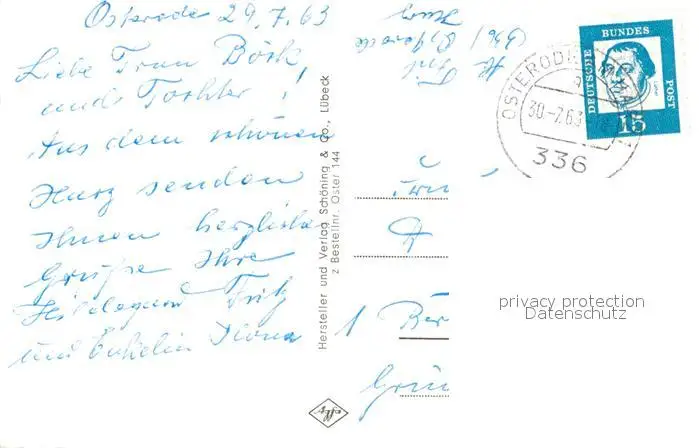 Osterode 29.7.63
Liebe Frau Börk,
und Tochter!
Aus dem schönen
Harz senden
Ihnen herzliche
Grüße Ihre
Hildegard Fritz
und Enkelin Ilona
Hersteller und Verlag Schöning & Co., Lübeck
z Bestellnr. Oster 144
336 Osterode
Harz
DEUTSCHE BUNDES POST
15
OSTERODE
30.-7.63
336
1 Ber
Grün
privacy protection
Datenschutz